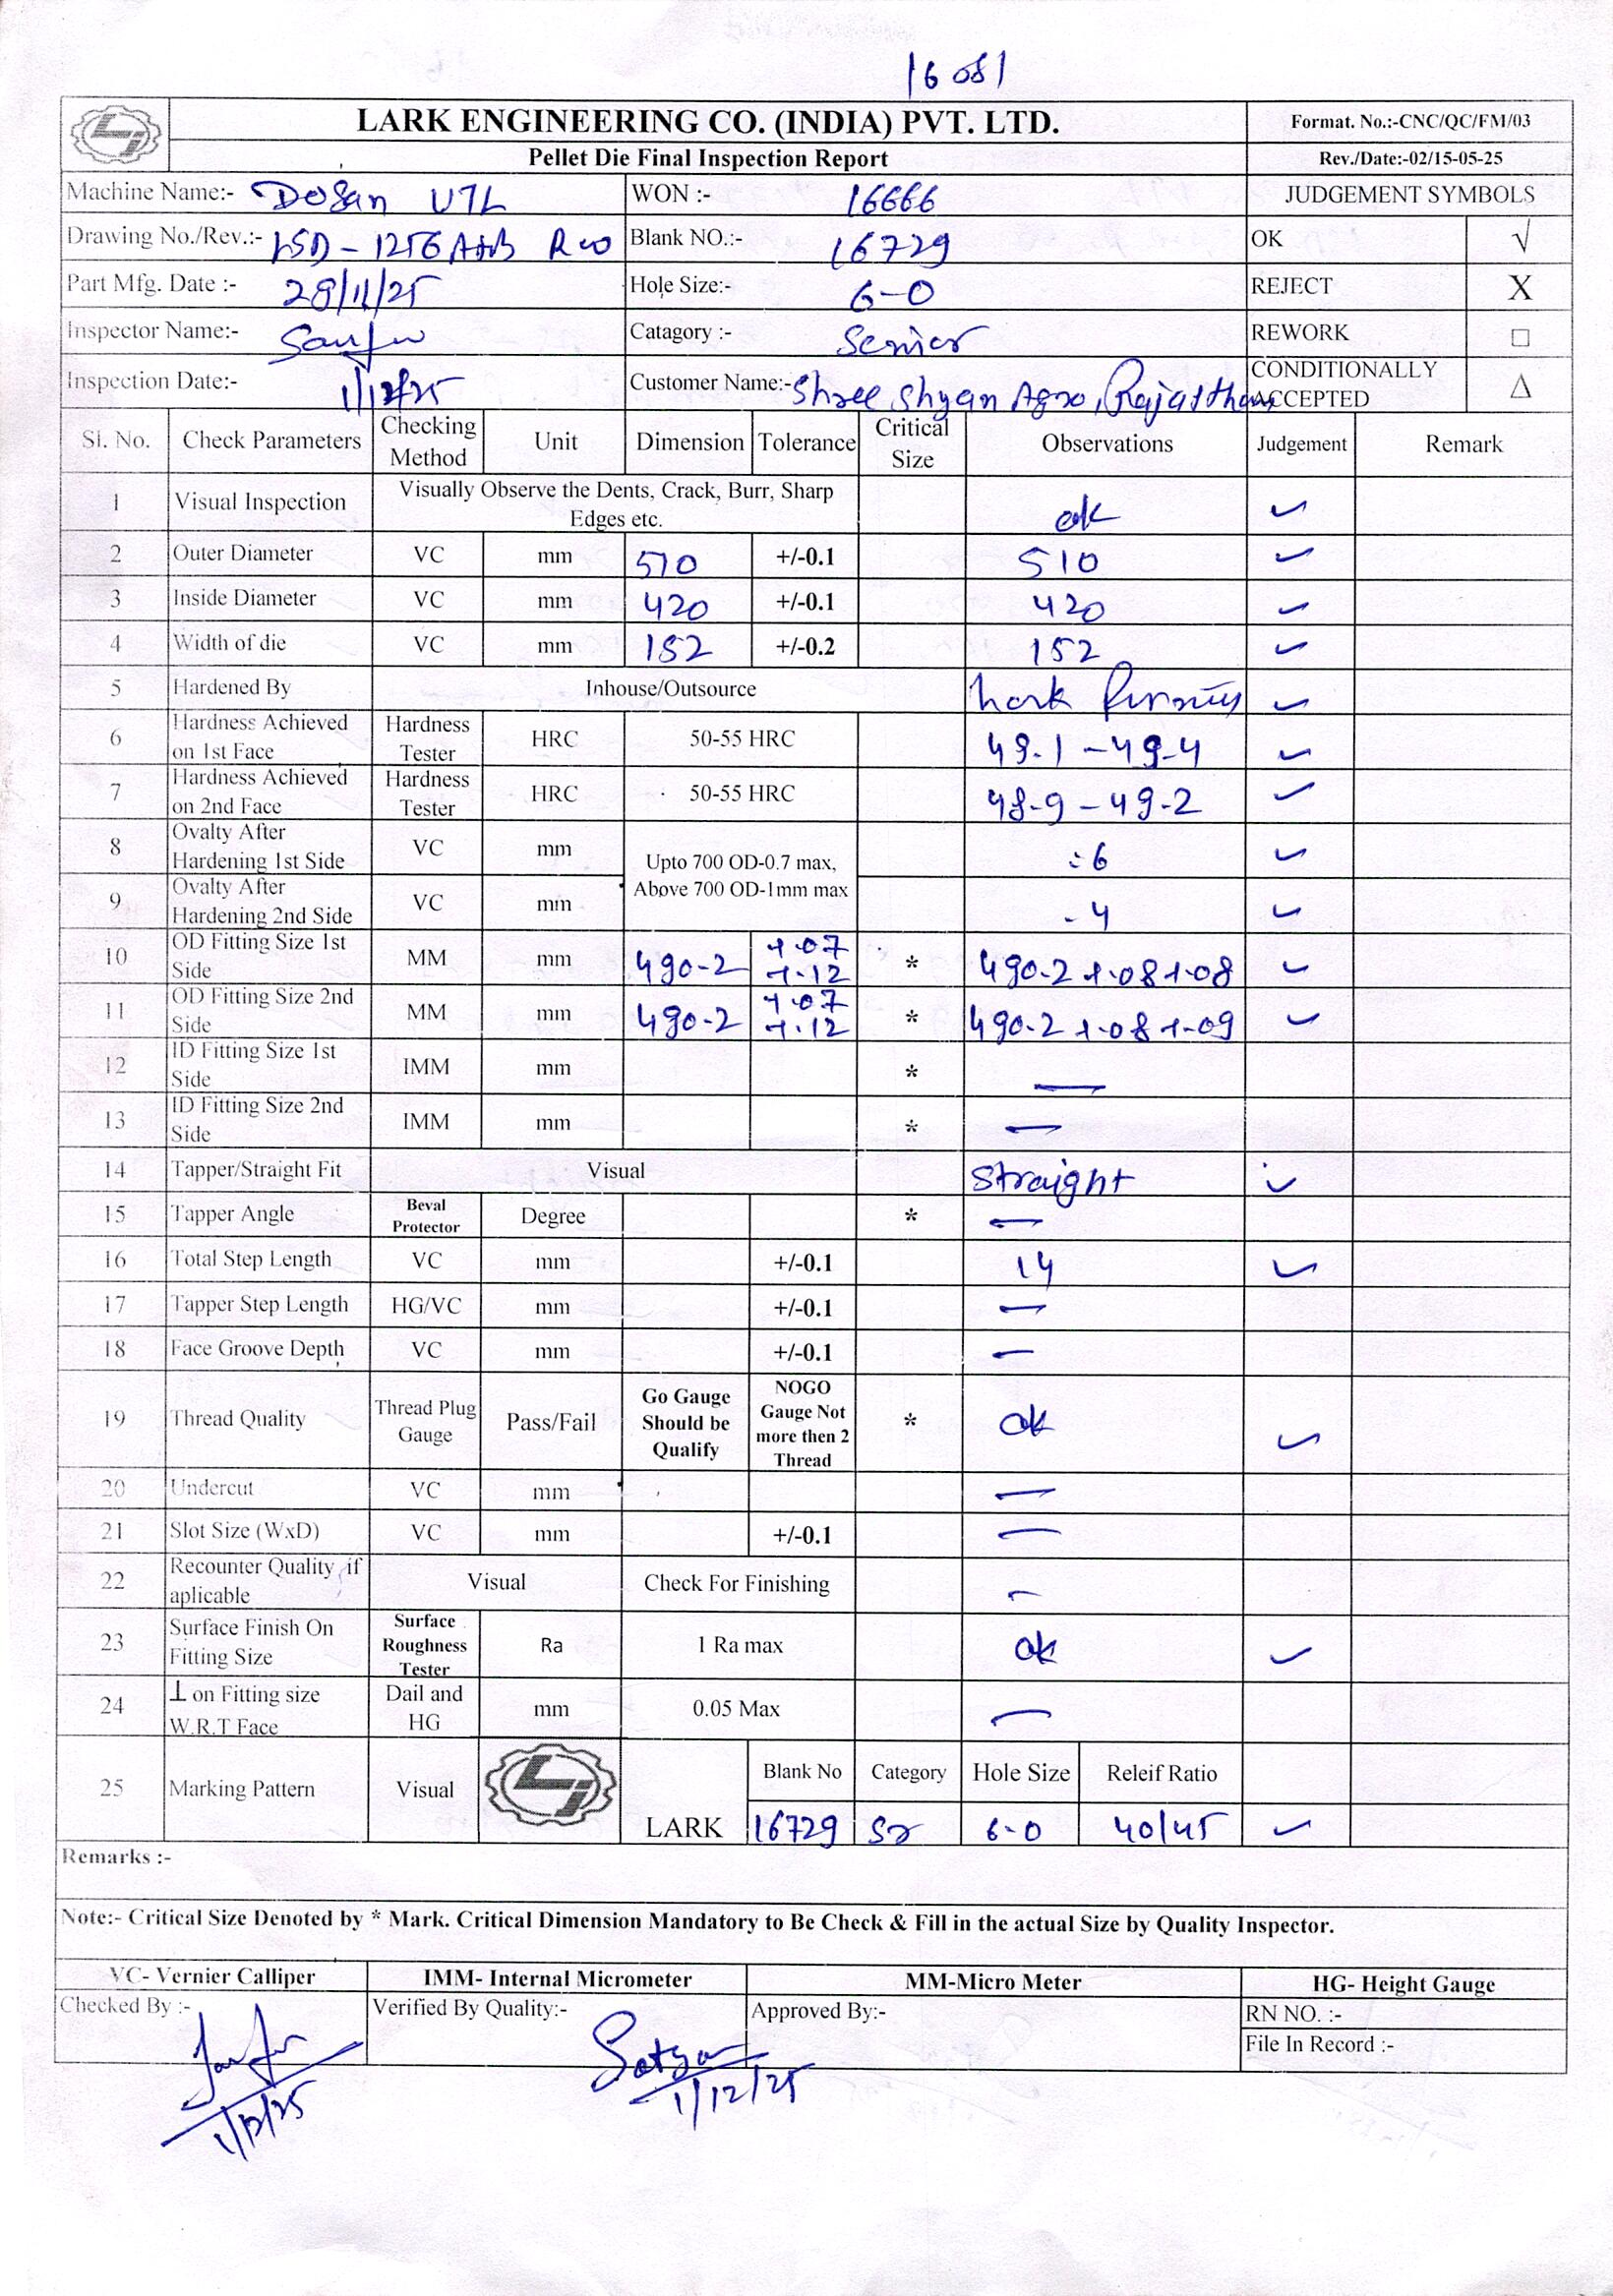 16081
LARK ENGINEERING CO. (INDIA) PVT. LTD.
Format. No.:-CNC/QC/FM/03
Pellet Die Final Inspection Report
Rev./Date:-02/15-05-25
Machine Name:- Dosan VTL WON :- 16666 JUDGEMENT SYMBOLS
Drawing No./Rev.:- LSD-1256 A+B R00 Blank NO.:- 16729 OK √
Part Mfg. Date :- 28/11/25 Hole Size:- 6-0 REJECT X
Inspector Name:- Catagory :- Senior REWORK □
Inspection Date:- 1/12/25 Customer Name:- Shree Shyam Agro, Rajasthan CONDITIONALLY ACCEPTED △
Sl. No. Check Parameters Checking Method Unit Dimension Tolerance Critical Size Observations Judgement Remark
1 Visual Inspection Visually Observe the Dents, Crack, Burr, Sharp Edges etc. ok ✓
2 Outer Diameter VC mm 510 +/-0.1 510 ✓
3 Inside Diameter VC mm 420 +/-0.1 420 ✓
4 Width of die VC mm 152 +/-0.2 152 ✓
5 Hardened By Inhouse/Outsource Lark ✓
6 Hardness Achieved on 1st Face Hardness Tester HRC 50-55 HRC 49.1-49.4 ✓
7 Hardness Achieved on 2nd Face Hardness Tester HRC 50-55 HRC 48-9-49-2 ✓
8 Ovalty After Hardening 1st Side VC mm Upto 700 OD-0.7 max, Above 700 OD-1mm max .6 ✓
9 Ovalty After Hardening 2nd Side VC mm .4 ✓
10 OD Fitting Size 1st Side MM mm 490-2 +.07 +.12 * 490.2 +.08+.08 ✓
11 OD Fitting Size 2nd Side MM mm 490-2 +.07 +.12 * 490.2 +.08 +.09 ✓
12 ID Fitting Size 1st Side IMM mm * —
13 ID Fitting Size 2nd Side IMM mm * —
14 Tapper/Straight Fit Visual Straight ✓
15 Tapper Angle Beval Protector Degree * —
16 Total Step Length VC mm +/-0.1 14 ✓
17 Tapper Step Length HG/VC mm +/-0.1 —
18 Face Groove Depth VC mm +/-0.1 —
19 Thread Quality Thread Plug Gauge Pass/Fail Go Gauge Should be Qualify NOGO Gauge Not more then 2 Thread * ok ✓
20 Undercut VC mm —
21 Slot Size (WxD) VC mm +/-0.1 —
22 Recounter Quality if aplicable Visual Check For Finishing —
23 Surface Finish On Fitting Size Surface Roughness Tester Ra 1 Ra max ok ✓
24 ⊥ on Fitting size W.R.T Face Dail and HG mm 0.05 Max —
25 Marking Pattern Visual LARK Blank No Category Hole Size Releif Ratio
16729 Sr 6-0 40/45 ✓
Remarks :-
Note:- Critical Size Denoted by * Mark. Critical Dimension Mandatory to Be Check & Fill in the actual Size by Quality Inspector.
VC- Vernier Calliper IMM- Internal Micrometer MM-Micro Meter HG- Height Gauge
Checked By :- Verified By Quality:- Approved By:- RN NO. :-
File In Record :-
Satyam
1/12/25 1/12/25